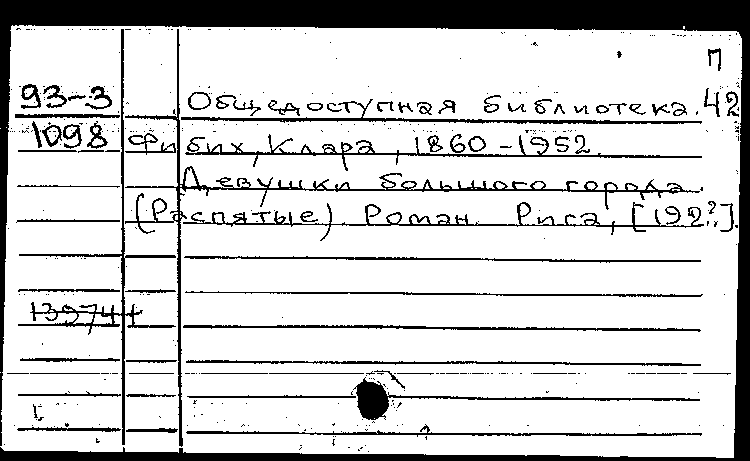 П
93-3 Общедоступная библиотека. 42
1098 Фибих, Клара, 1860-1952.
Девушки большого города.
(Распятые) Роман. Рига, [192?].
13974 +